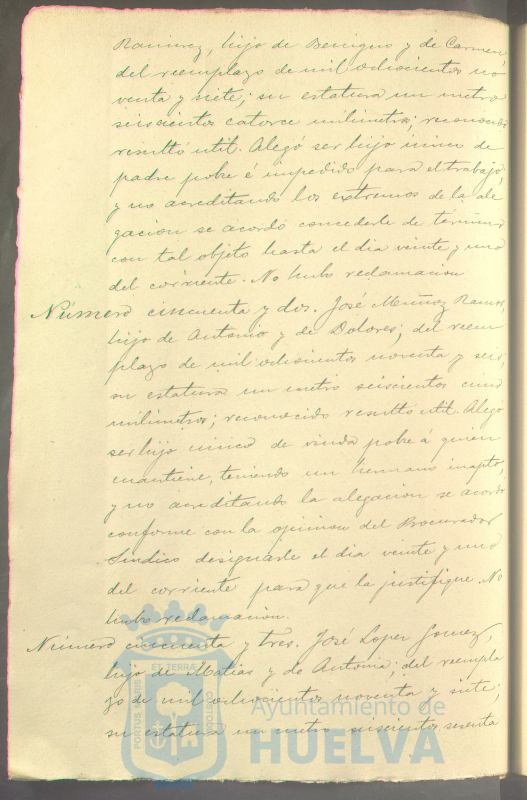 Ramirez, hijo de Benigno y de Carmen,
del reemplazo de mil ochocientos no
venta y siete; su estatura un metro
seiscientos catorce milimetros; reconocido
resultó util. Alegó ser hijo unico de
padre pobre é impedido para el trabajo,
y no acreditando los extremos de la ale
gacion se acordó concederle de termino
con tal objeto hasta el dia veinte y uno
del corriente. No hubo reclamacion
Número cincuenta y dos. José Muñoz Ramos,
hijo de Antonio y de Dolores; del reem
plazo de mil ochocientos noventa y seis;
su estatura un metro seiscientos cinco
milimetros; reconocido resultó util. Alegó
ser hijo unico de viuda pobre á quien
mantiene, teniendo un hermano inapto,
y no acreditando la alegacion se acordó
conforme con la opinion del Procurador
Sindico designarle el dia veinte y uno
del corriente para que la justifique. No
hubo reclamacion.
Número cincuenta y tres. José Lopez Gomez,
hijo de Matias y de Antonia; del reempla
zo de mil ochocientos noventa y siete;
su estatura un metro seiscientos sesenta
PORTUS MARIS ET TERRAE CUSTODIA
Ayuntamiento de
HUELVA